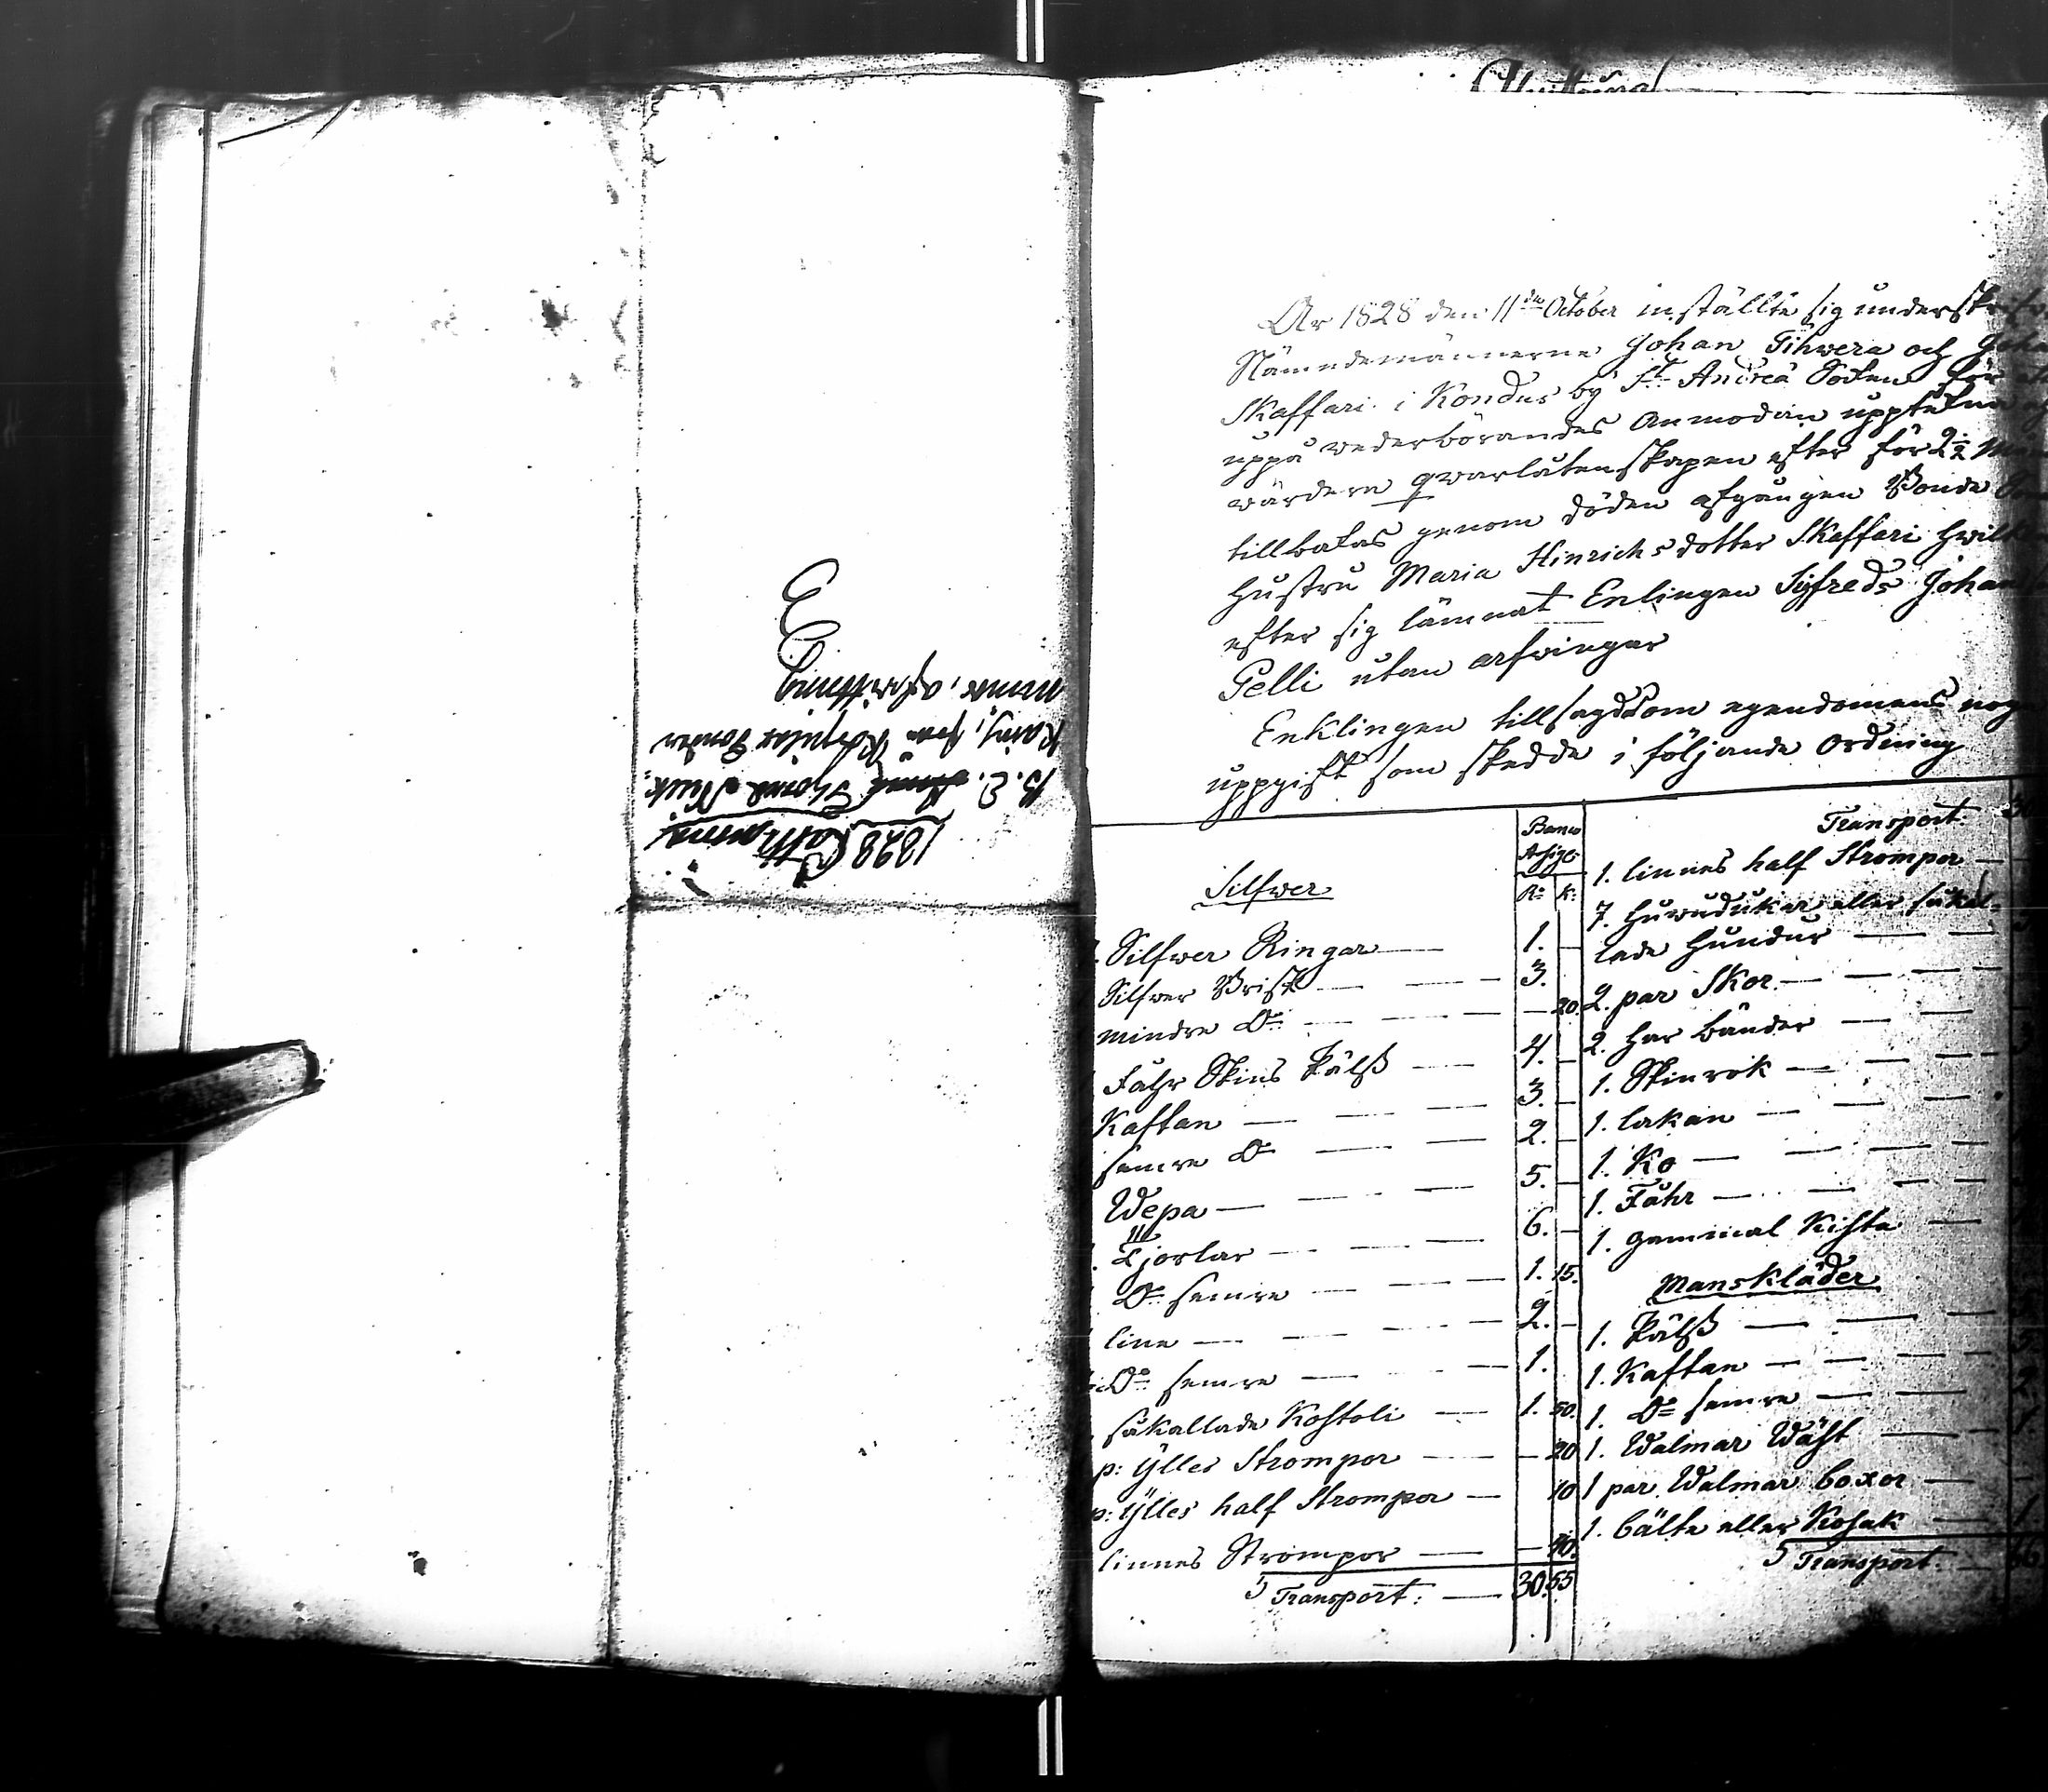 1828 
B. E. Thomas
Kainj, från Kospulax Donation
nemes, afwittring
År 1828 den 11te October inställte sig underskrifv
Nämndemännerne Johan Tihwera och Joha
Skaffari i Kondus by St. Andreä Soken för at
uppå wederbörandes anmodan uppteckna och
wärdera qwarlåtenskapen efter för 2 1/2 Mån
tillbakas genom döden afgången Bonde
hustru Maria Hinrichsdotter Skaffari hwilken
efter sig lämnat Enlingen Sigfreds Johan
Pelli utan arfwingar
Enklingen tillsagd om egendomens noga
uppgift som skedde i följande Ordning
Banco
Assign:
R: K:
Silfwer
Silfwer Ringar — 1. —
Silfwer Brisk — 3.
mindre Do — 20.
Fåhr Skins Pälss — 4. —
Kaftan — 3. —
semre Do — 2. —
Wepa — 5. —
Tjortar — 6. —
Do semre — 1. 15.
line — 2. —
Do semre — 1.
såkallade Kostoli — 1. 50.
p: Ylles Strompor — 20
p: Ylles half Strompor — 10
linnes Strompor — 40.
Transport: — 30. 55
Transport: 30
1. linnes half Strompor —
7. huwudukar eller såkal-
lade Hundur —
2. par Skor —
2. har bänder —
1. Spinrok —
1. lakan —
1. Ko —
1. Fåhr —
1. gammal Kista —
Manskläder
1. Pälss —
1. Kaftan — 5.
1. Do semre — 2.
1. Walmar Wäst — 1.
1 par Walmar boxor —
1. bälte eller Kosak — 1.
Transport: 66